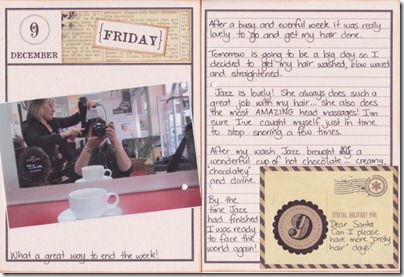 9
DECEMBER
{FRIDAY}
What a great way to end the week!
After a busy and evenful week it was really
lovely to go and get my hair done.
Tomorrow is going to be a big day so I
decided to get my hair washed, blow waved
and straightened.
Jazz is lovely! She always does such a
great job with my hair... She also does
the most AMAZING head massages! I'm
sure I've caught myself just in time
to stop snoring a few times.
After my wash Jazz brought me a
wonderful cup of hot chocolate... creamy,
"chocolatey"
and divine.
By the
time Jazz
had finished
I was ready
to face the
world again!
9
SPECIAL DELIVERY FOR:
Dear Santa
Can I please
have more "pretty
hair" days?